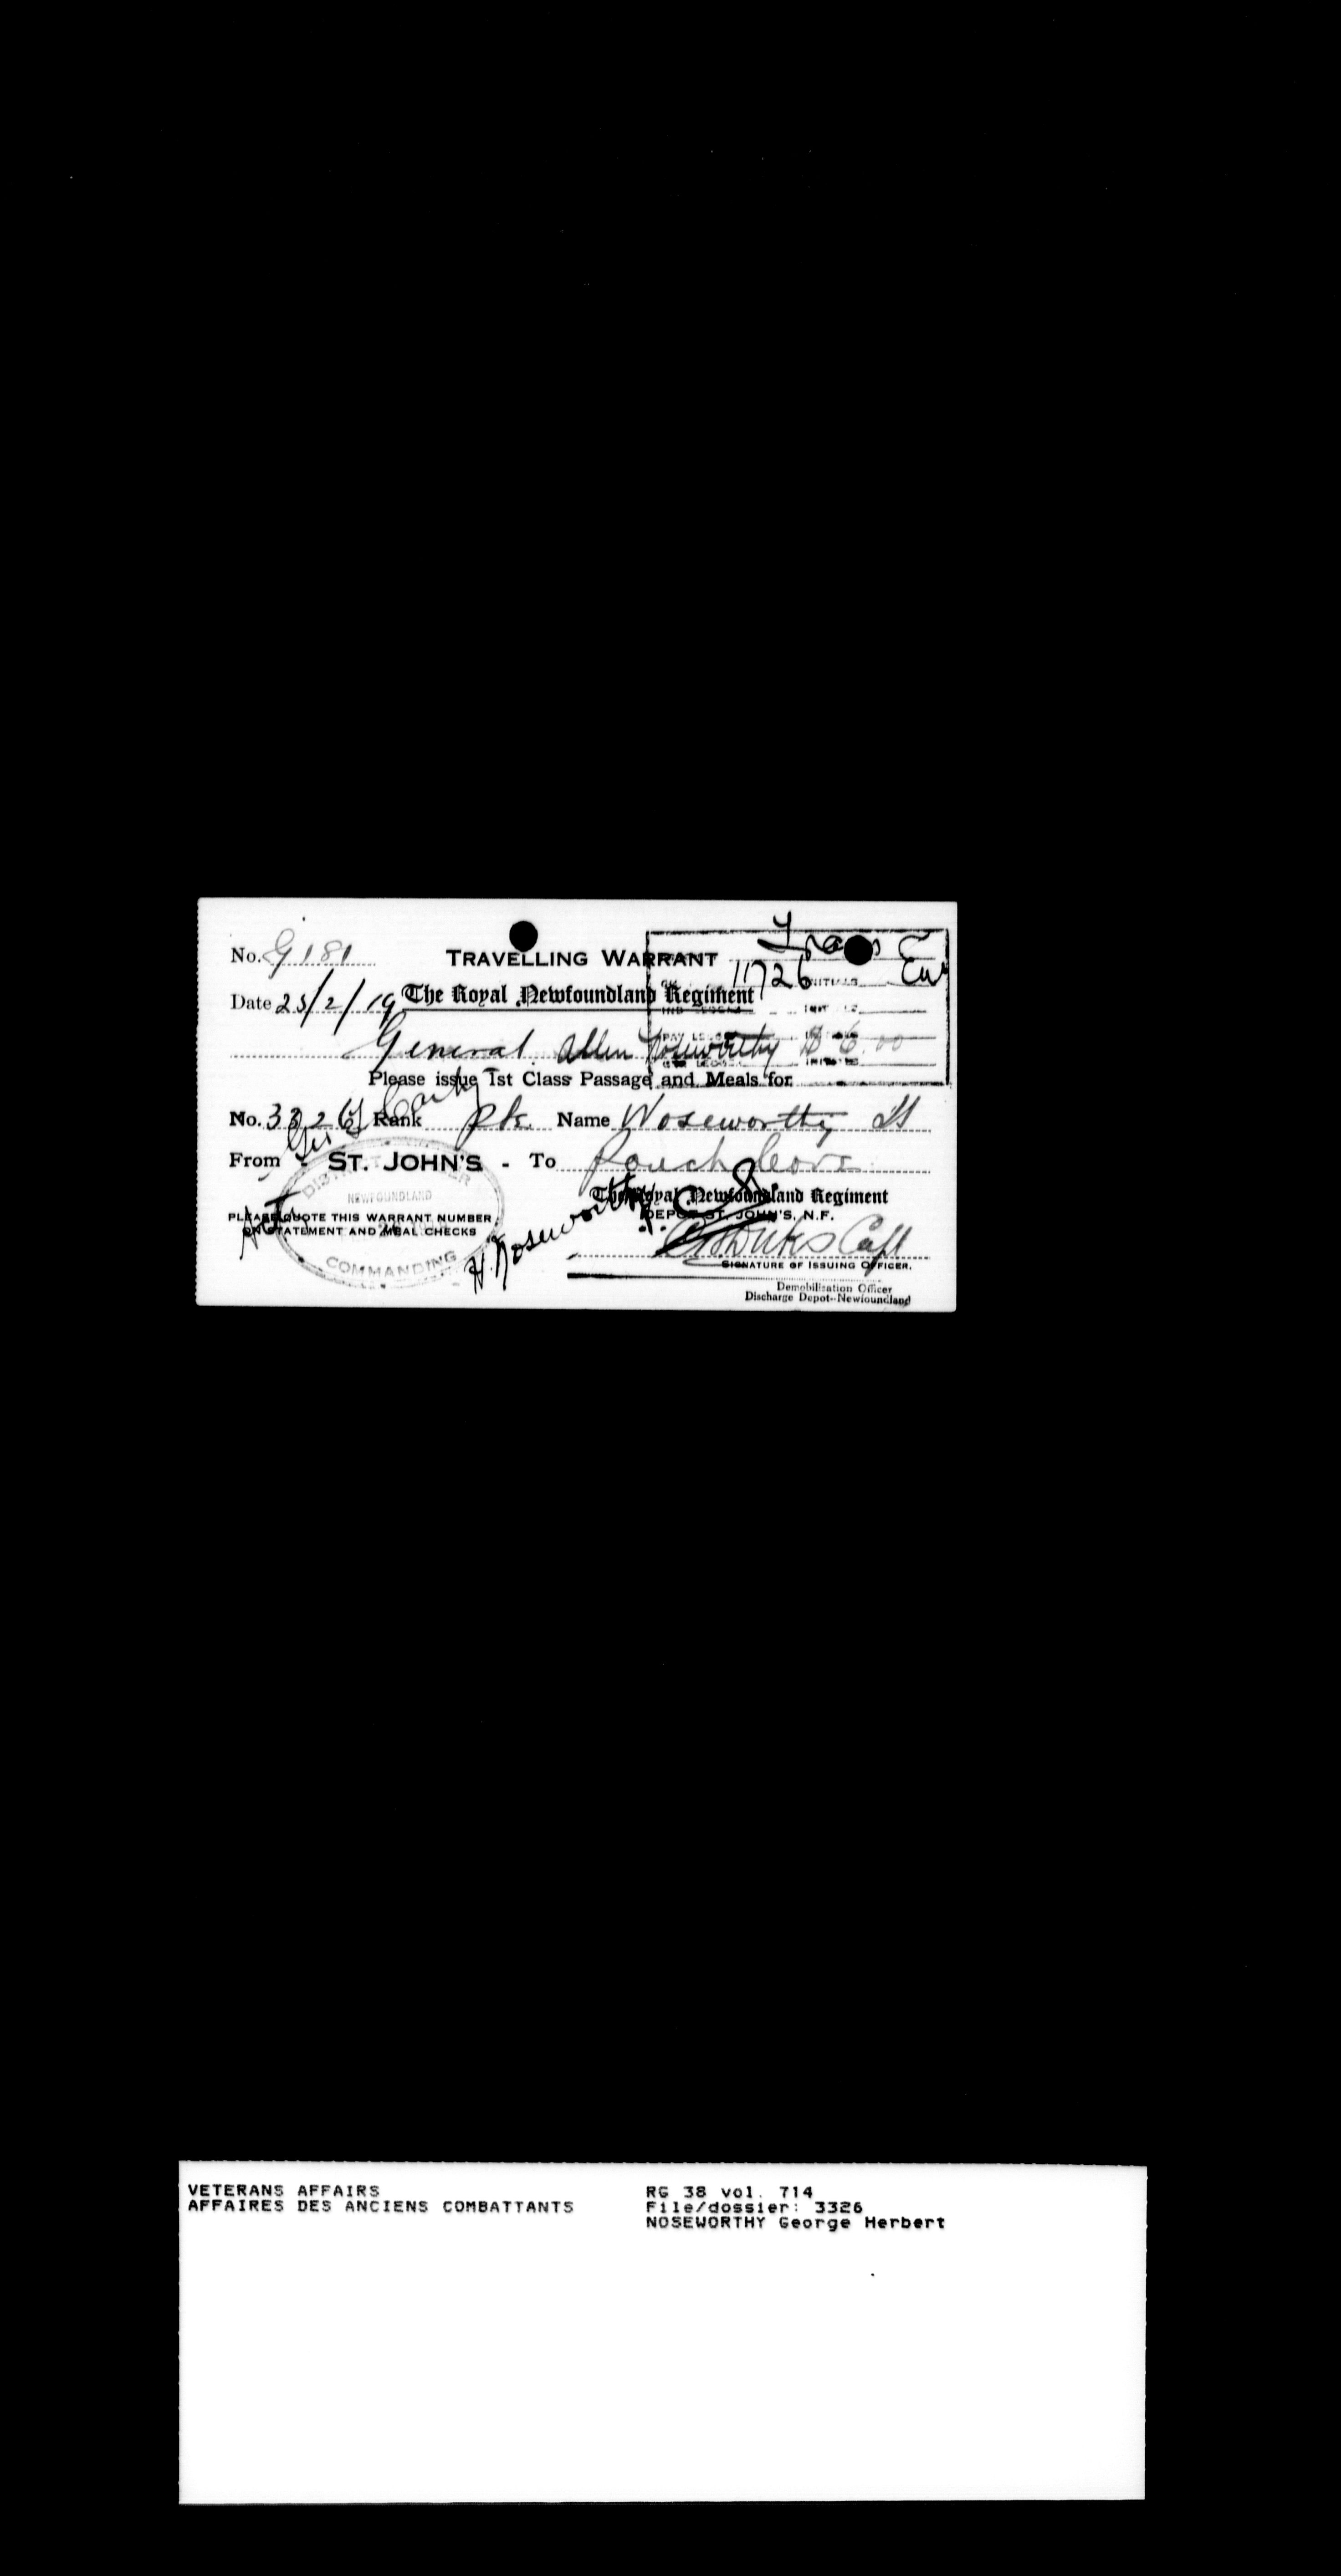 No. G181 TRAVELLING WARRANT Trans
11726
Date 25/2/19 The Royal Newfoundland Regiment
General Allen Noseworthy $6.00
Please issue 1st Class Passage and Meals for
No. 3326 Rank Pte. Name Noseworthy H
From - ST. JOHN'S - To Pouch Cove
DISTRICT OFFICER
NEWFOUNDLAND
COMMANDING
The Royal Newfoundland Regiment
DEPOT ST. JOHN'S, N.F.
PLEASE QUOTE THIS WARRANT NUMBER
ON STATEMENT AND MEAL CHECKS
H. Noseworthy
Capt
SIGNATURE OF ISSUING OFFICER.
Demobilisation Officer
Discharge Depot--Newfoundland
VETERANS AFFAIRS
AFFAIRES DES ANCIENS COMBATTANTS
RG 38 vol. 714
File/dossier: 3326
NOSEWORTHY George Herbert